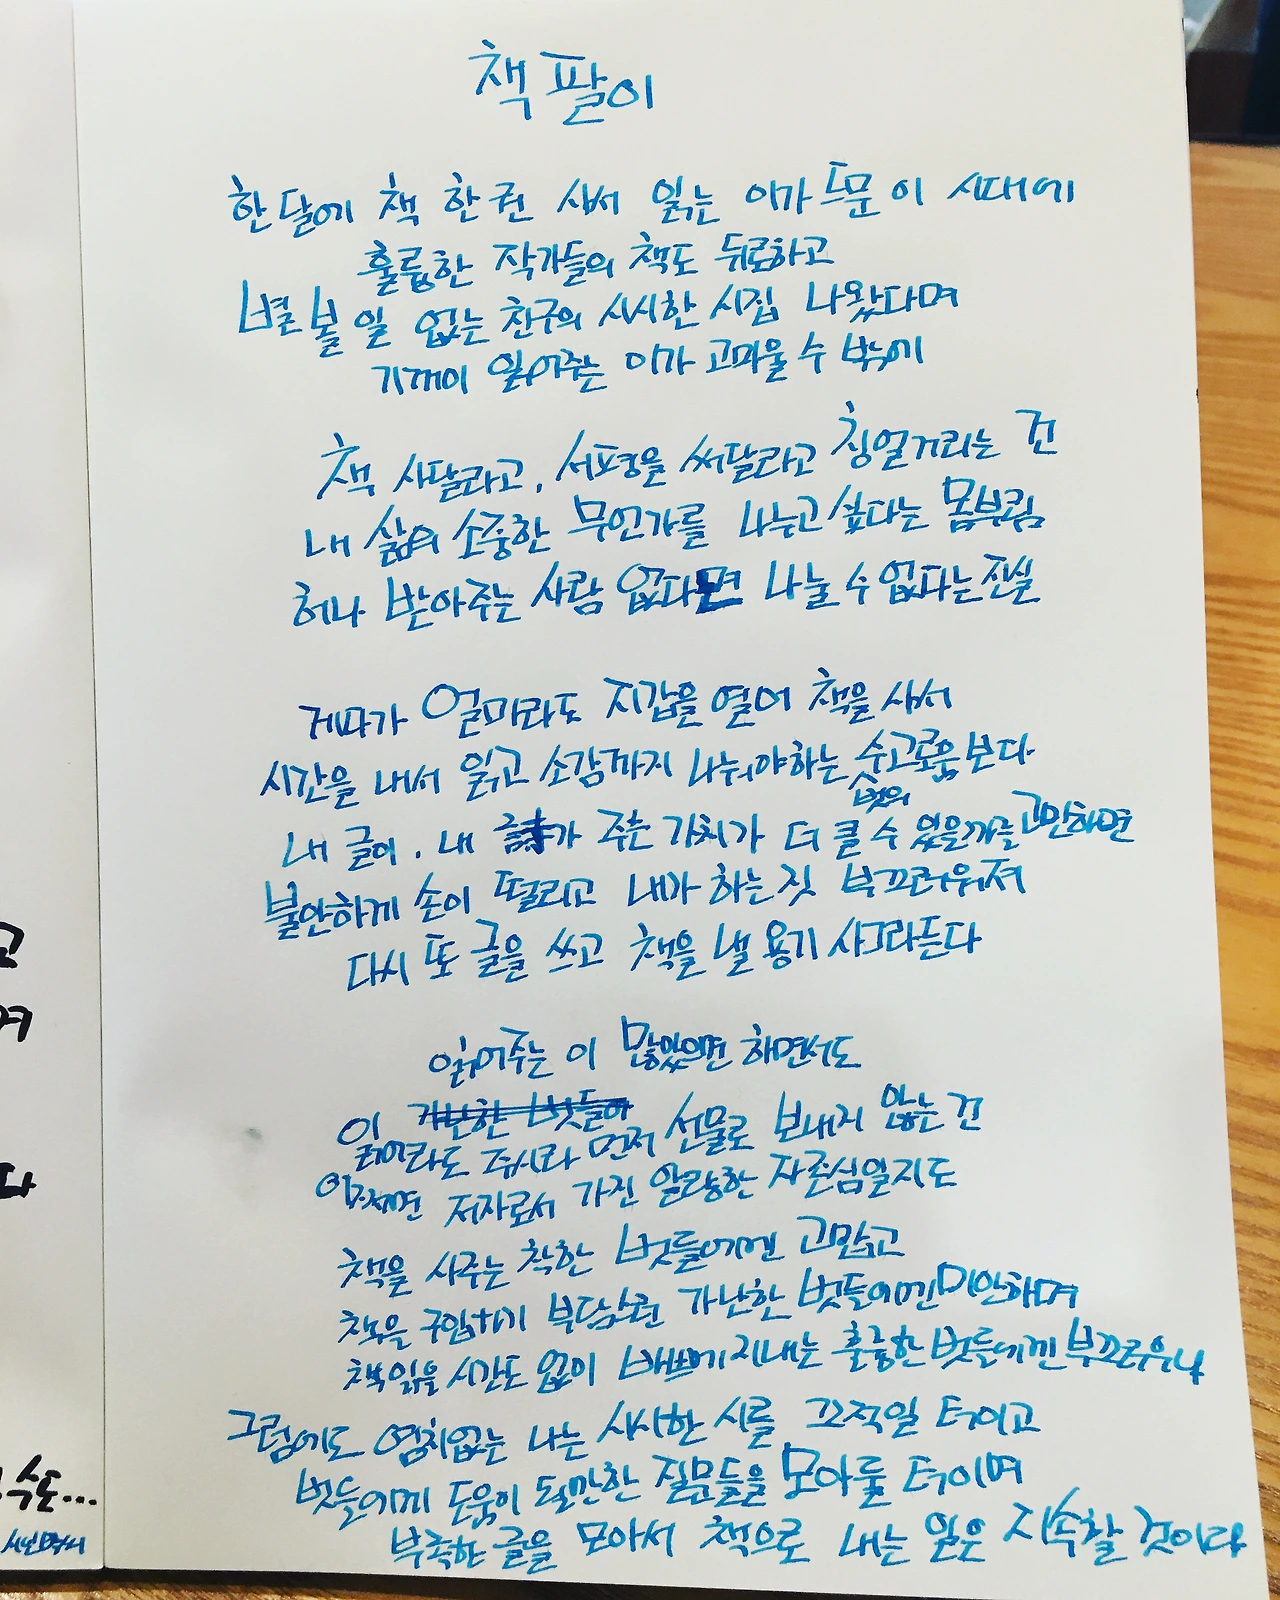 책팔이
한달에 책 한권 사서 읽는 이가 드문 이 시대에
훌륭한 작가들의 책도 뒤로하고
별 볼 일 없는 친구의 시시한 시집 나왔다며
기꺼이 읽어주는 이가 고마울 수 밖에
책 사달라고, 서평을 써달라고 칭얼거리는 건
내 삶의 소중한 무언가를 나누고 싶다는 몸부림
허나 받아주는 사람 없다면 나눌 수 없다는 진실
게다가 얼마라도 지갑을 열어 책을 사서
시간을 내서 읽고 소감까지 나눠야하는 수고로움보다
벗의
내 글이, 내 詩가 주는 가치가 더 클 수 있을까를 고민하면
불안하게 손이 떨리고 내가 하는 짓 부끄러워져
다시 또 글을 쓰고 책을 낼 용기 사그라든다
읽어주는 이 많았으면 하면서도
가난한 벗들이
읽어라도 주시라 먼저 선물로 보내지 않는 건
어쩌면 저자로서 가진 알량한 자존심일지도
책을 사주는 착한 벗들에겐 고맙고
책을 구입하기 부담스런 가난한 벗들에겐 미안하며
책 읽을 시간도 없이 바쁘게 지내는 훌륭한 벗들에겐 부끄러우나
그럼에도 염치없는 나는 시시한 시를 끄적일 터이고
벗들에게 도움이 될만한 질문들을 모아둘 터이며
부족한 글을 모아서 책으로 내는 일은 지속할 것이다
고
며
다
수도...